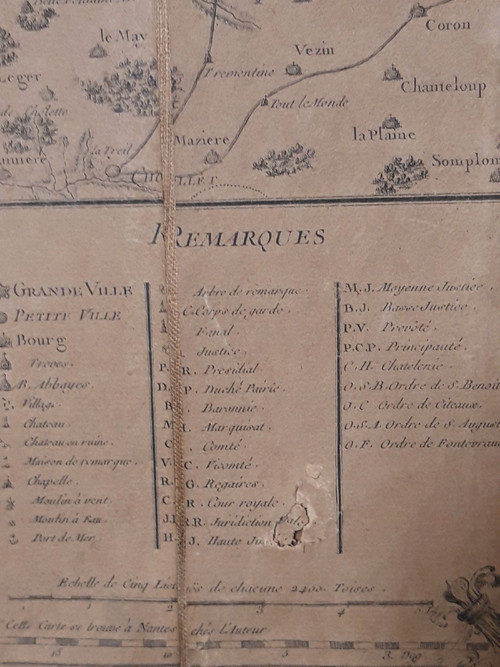 le May
Coron
Vezin
Tremontine
Chanteloup
Tout le Monde
Maziere
la Plaine
la Treil
Somplon
CHOLLET
REMARQUES
GRANDE VILLE
PETITE VILLE
Bourg
Treves
B. Abbayes
Village
Chateau
Chateau en ruine
Maison de remarque
Chapelle
Moulin à vent
Moulin à Eau
Port de Mer
Arbre de remarque
C. Corps de garde
Fanal
Justice
P. R. Presidial
D. P. Duché Pairie
B. Baronnie
M. Marquisat
C. Comté
V. C. Vicomté
R. G. Regaires
C. R. Cour royale
J. R. R. Juridiction
H. J. Haute
M. J. Moyenne Justice
B. J. Basse Justice
P. V. Prevôté
P. C. P. Principauté
C. H. Chatelenie
O. S. B. Ordre de S. Benoit
O. C Ordre de Citeaux
O. S. A Ordre de S. August
O. F. Ordre de Fontevrau
Echelle de Cinq de chacune 2400 Toises
2 3 4
Cette Carte se trouve à Nantes chés l'Auteur